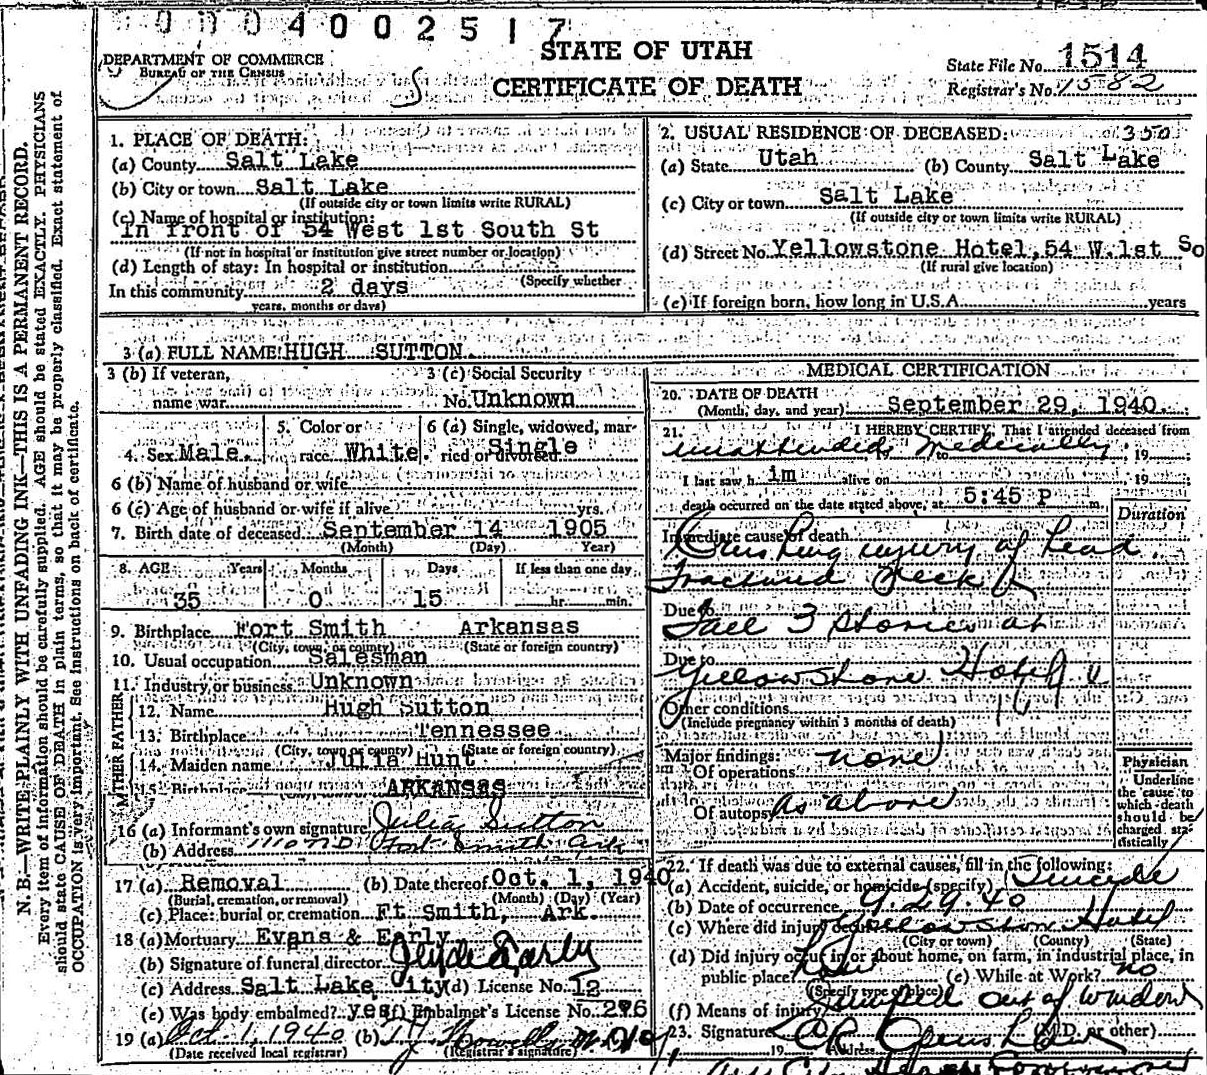 0004002517
DEPARTMENT OF COMMERCE
BUREAU OF THE CENSUS
STATE OF UTAH
CERTIFICATE OF DEATH
State File No. 1514
Registrar's No. 1582
N. B.—WRITE PLAINLY WITH UNFADING INK—THIS IS A PERMANENT RECORD.
Every item of information should be carefully supplied. AGE should be stated EXACTLY. PHYSICIANS
should state CAUSE OF DEATH in plain terms, so that it may be properly classified. Exact statement of
OCCUPATION is very important. See instructions on back of certificate.
1. PLACE OF DEATH:
(a) County Salt Lake
(b) City or town Salt Lake
(If outside city or town limits write RURAL)
(c) Name of hospital or institution:
In front of 54 West 1st South St
(If not in hospital or institution give street number or location)
(d) Length of stay: In hospital or institution
(Specify whether
In this community 2 days
years, months or days)
2. USUAL RESIDENCE OF DECEASED: 350
(a) State Utah (b) County Salt Lake
(c) City or town Salt Lake
(If outside city or town limits write RURAL)
(d) Street No. Yellowstone Hotel, 54 W. 1st So
(If rural give location)
(e) If foreign born, how long in U.S.A. years
3 (a) FULL NAME HUGH SUTTON
3 (b) If veteran,
name war
3 (c) Social Security
No. Unknown
4. Sex Male.
5. Color or
race White.
6 (a) Single, widowed, mar-
ried or divorced Single
6 (b) Name of husband or wife
6 (c) Age of husband or wife if alive yrs.
7. Birth date of deceased September 14 1905
(Month) (Day) Year)
8. AGE Years Months Days If less than one day
35 0 15 hr. min.
9. Birthplace Fort Smith Arkansas
(City, town, or county) (State or foreign country)
10. Usual occupation Salesman
11. Industry or business Unknown
FATHER
12. Name Hugh Sutton
13. Birthplace Tennessee
(City, town or county) (State or foreign country)
MTHER
14. Maiden name Julia Hunt
15. Birthplace ARKANSAS
16 (a) Informant's own signature Julia Sutton
(b) Address Fort Smith Ark
17 (a) Removal (b) Date thereof Oct. 1, 1940
(Burial, cremation, or removal) (Month) (Day) (Year)
(c) Place: burial or cremation Ft. Smith, Ark.
18 (a) Mortuary Evans & Early
(b) Signature of funeral director Clyde Early
(c) Address Salt Lake City (d) License No. 12
(e) Was body embalmed? yes (f) Embalmer's License No. 296
19 (a) Oct-1, 1940 (b) Howells M.D.
(Date received local registrar) (Registrar's signature)
MEDICAL CERTIFICATION
20. DATE OF DEATH
(Month, day, and year) September 29, 1940.
21. I HEREBY CERTIFY, That I attended deceased from
unattended medically to 19
I last saw h im alive on 19
death occurred on the date stated above, at 5:45 P m.
Duration
Immediate cause of death
Crushing injury of head.
Fractured Neck
Due to
Fall 3 stories at
Due to
Yellowstone Hotel
Other conditions
(Include pregnancy within 3 months of death)
Major findings:
Of operations none
Of autopsy As above
Physician
Underline
the cause to
which death
should be
charged sta-
tistically
22. If death was due to external causes, fill in the following:
(a) Accident, suicide, or homicide (specify) Suicide
(b) Date of occurrence 9-29-40
(c) Where did injury occur? Yellowstone Hotel
(City or town) (County) (State)
(d) Did injury occur in or about home, on farm, in industrial place, in
public place? (e) While at Work? no
(Specify type of place)
(f) Means of injury Jumped out of window
23. Signature (M.D. or other)
19 Address